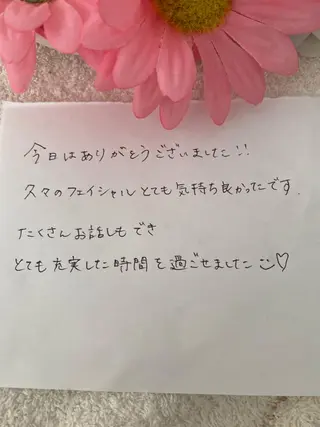 今日はありがとうございました!!
久々のフェイシャルとても気持ち良かったです.
たくさんお話しもでき
とても充実した時間を過ごせました☺♡